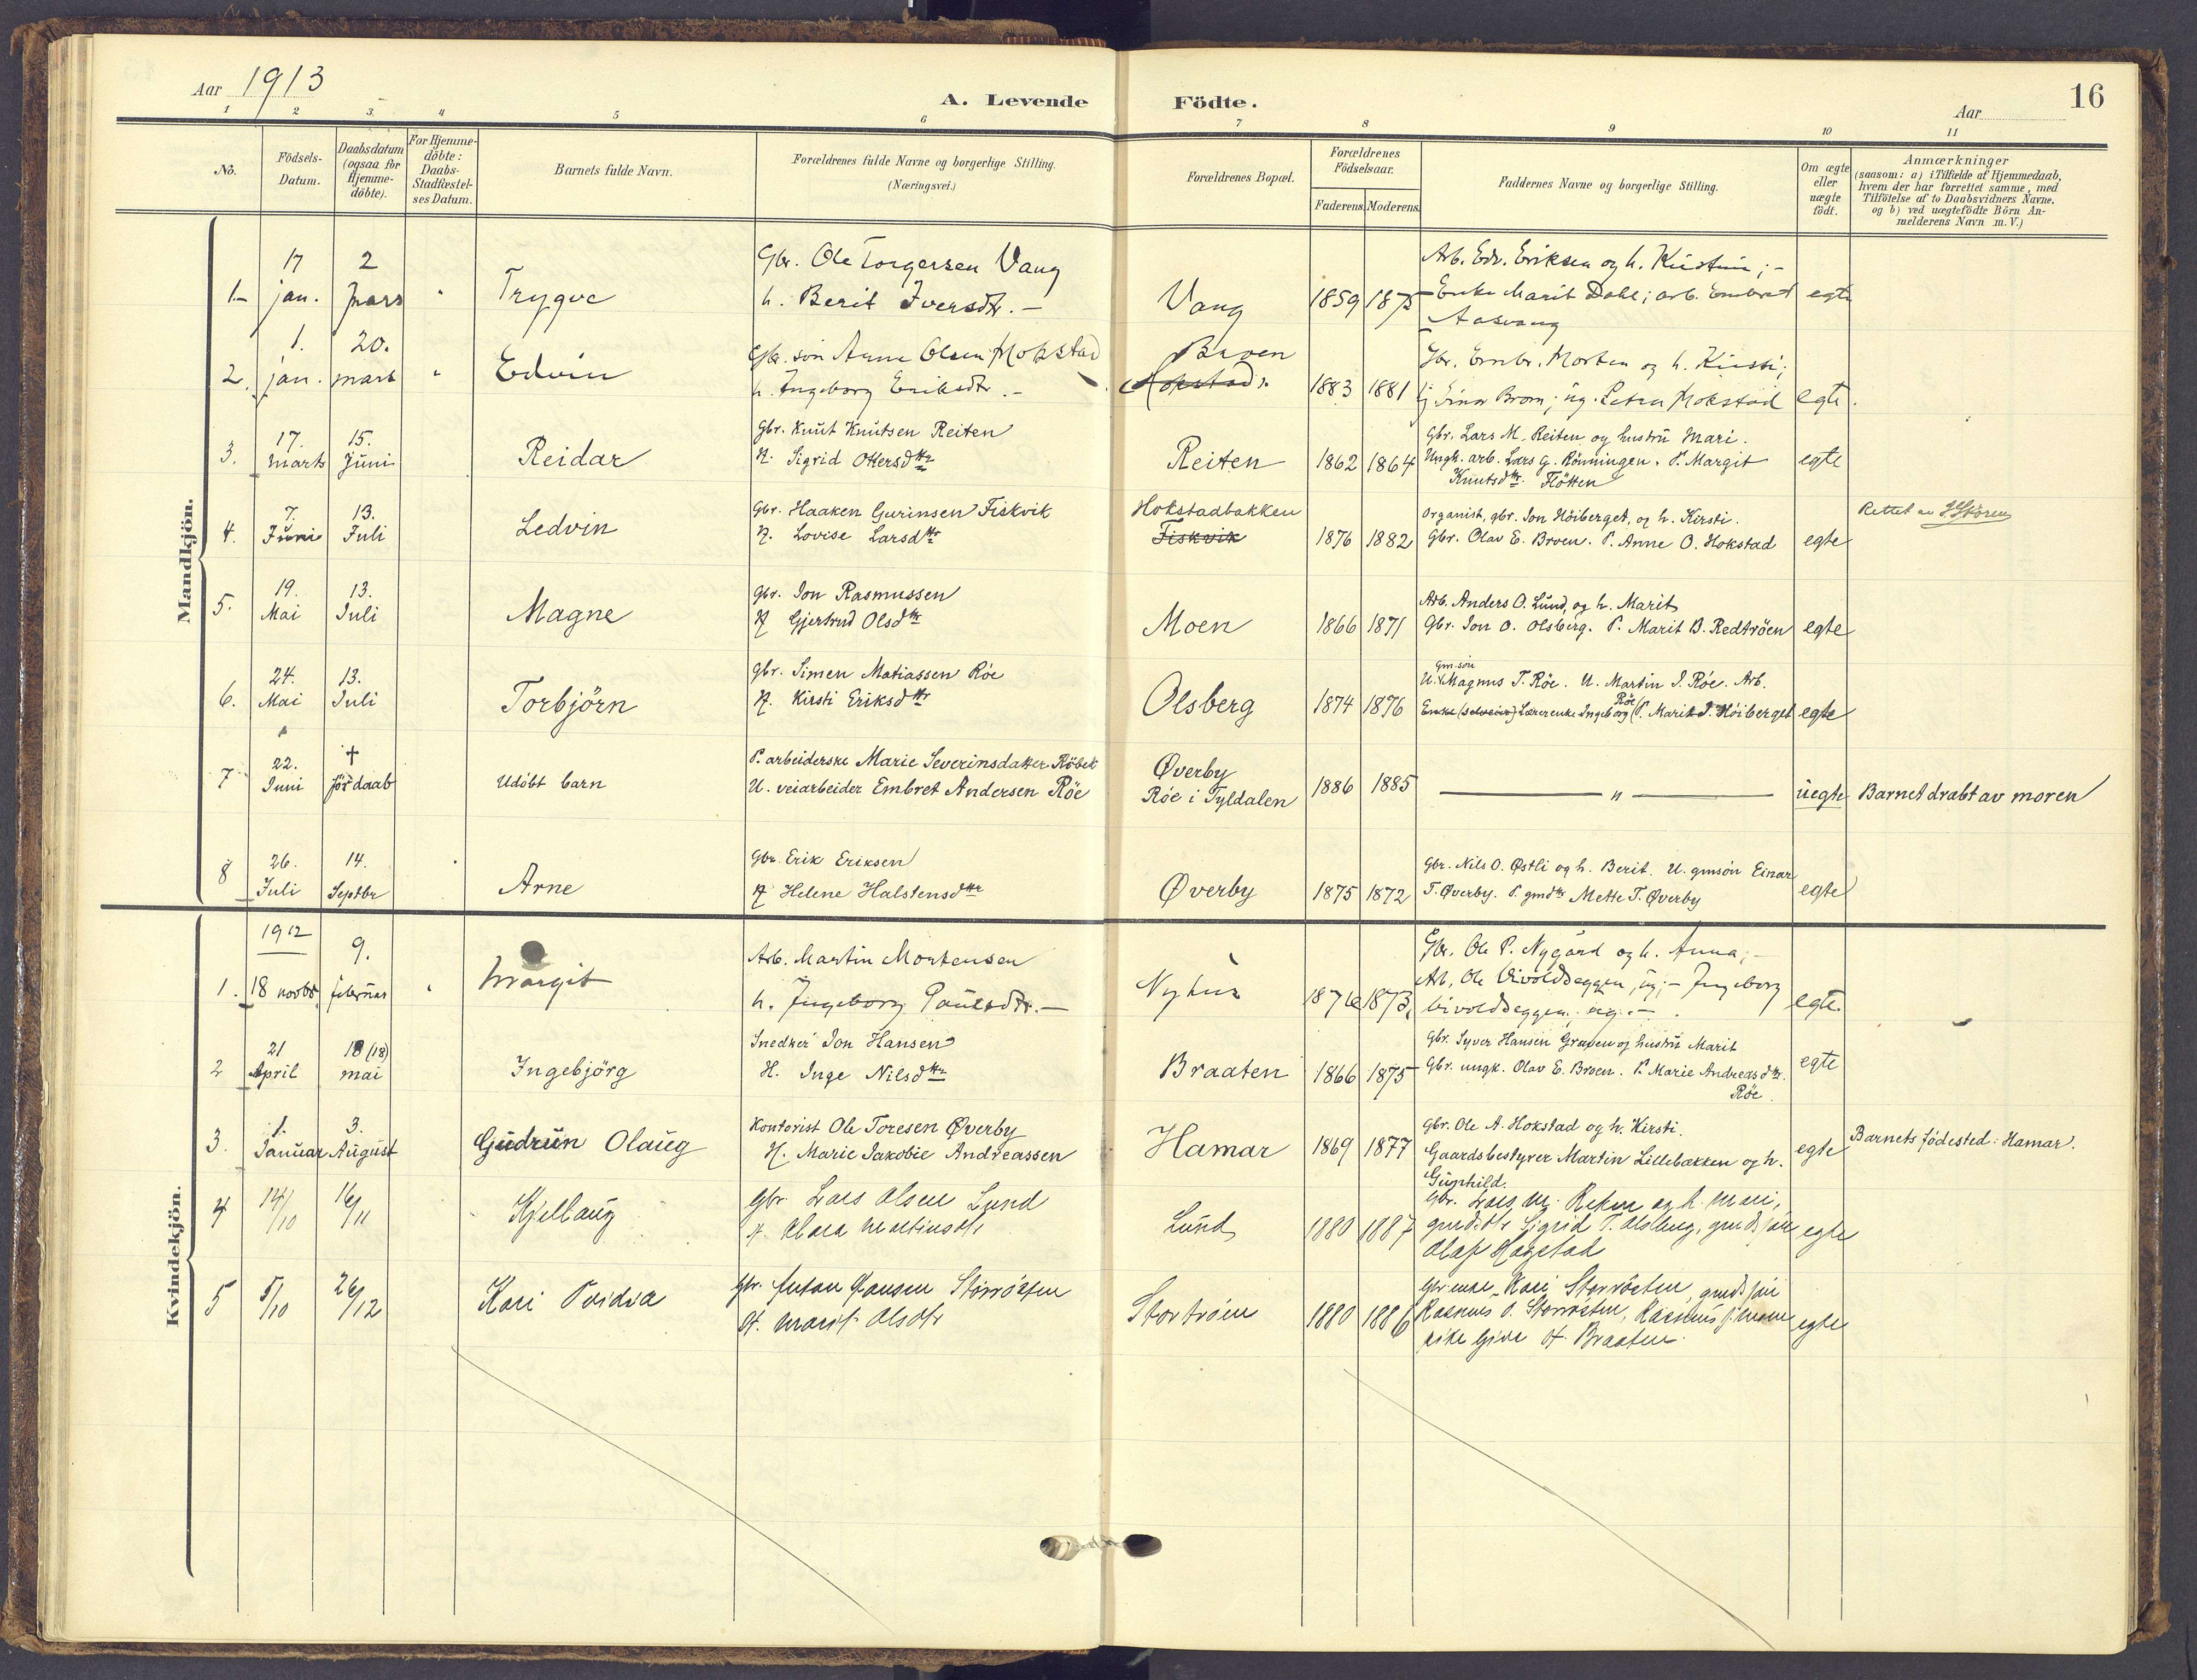 Aar 1913
A. Levende Födte.
16
Aar
1 2 3 4 5 6 7 8 9 10 11
No.
Födsels-Datum.
Daabsdatum (ogsaa for Hjemme-döbte).
For Hjemme-döbte: Daabs-Stadfæstel-ses Datum.
Barnets fulde Navn.
Forældrenes fulde Navne og borgerlige Stilling.
(Næringsvei.)
Forældrenes Bopæl.
Forældrenes Födselsaar.
Faderens. Moderens.
Faddernes Navne og borgerlige Stilling.
Om ægte eller uægte födt.
Anmærkninger
(saasom: a) i Tilfælde af Hjemmedaab,
hvem der har forrettet samme, med
Tilföielse af to Daabsvidners Navne.
og b) ved uægtefödte Börn An-
melderens Navn m. V.)
Mandkjön.
1. 17 jan. 2 mars " Trygve
Gbr. Ole Torgersen Vang
h. Berit Iversdtr. –
Vang 1859 1875
Arb. Edv. Eriksen og h. Kristine; –
Enke Marit Dahl; arb. Embret
Aasvang
egte
2. 1. jan. 20. mars " Edvin
Gbr. sön Arne Olsen Hokstad
h. Ingeborg Eriksdtr. –
Broen
Hokstad.
1883 1881
Gbr. Embr. Morten og h. Kirsti;
Einar Broen; ug. Petra Hokstad
egte.
3. 17. marts 15. Juni Reidar
Gbr. Knut Knutsen Reiten
H. Sigrid Ottersdtr
Reiten 1862 1864
Gbr. Lars M. Reiten og hustru Mari.
Ungk. arb. Lars G. Rönningen. P. Margit
Knutsdtr. Flötten
egte
4. 7. Juni 13. Juli Ledvin
Gbr. Haaken Gurinsen Fiskvik
H. Lovise Larsdtr
Hokstadbakken
Fiskvik
1876 1882
Organist, gbr. Jon Höiberget, og h. Kirsti.
Gbr. Olav E. Broen. P. Anne O. Hokstad
egte
Rettet av
5. 19. Mai 13. Juli Magne
Gbr. Jon Rasmussen
H Gjertrud Olsdtr
Moen 1866 1871
Arb. Anders O. Lund, og h. Marit
Gbr. Jon O. Olsberg. P. Marit B. Redtröen
egte
6. 24. Mai 13. Juli Torbjörn
Gbr. Simen Matiassen Röe
H. Kirsti Eriksdtr
Olsberg 1874 1876
gm.sön
U. Magnus T. Röe. U. Martin J. Röe. Arb.
Enke Lærerenke Ingeborg Röe P. Marit J. Höiberget
egte
7. 22. Juni † för daab Udöbt barn
P. arbeiderske Marie Severinsdatter Röbek
U. veiarbeider Embret Andersen Röe
Øverby
Röe i Tyldalen
1886 1885
"
uegte
Barnet dræbt av moren
8 26. Juli 14. Septbr Arne
Gbr. Erik Eriksen
H Helene Halstensdtr
Øverby 1875 1872
Gbr. Nils O. Østli og h. Berit. U. gmsön Einar
T. Øverby. P. gmdtr Mette T. Øverby
egte
Kvindekjön.
1912
1. 18 novbr 9. februar " Margit
Arb. Martin Mortensen
h. Ingeborg Paulsdtr. –
Nyhus 1876 1873
Gbr. Ole P. Nygård og h. Anna; –
Arb. Ole Livolddeggen, ug; – Ingeborg
Livolddeggen, ug. –
egte.
2 21 April 18 (18) mai Ingebjörg
Snedker Jon Hansen
H. Inge Nilsdtr
Braaten 1866 1875
Gbr. Syver Hansen Graven og hustru Marit
Gbr. ungk. Olav E. Broen. P. Marie Andreasdtr.
Röe.
egte
3. 1. Januar 3. August Gudrun Olaug
Kontorist Ole Toresen Øverby
H. Marie Jakobie Andreassen
Hamar 1869 1877
Gbr. Ole A. Hokstad og h. Kirsti.
Gaardsbestyrer Martin Lillebakken og h.
Gunhild.
egte
Barnets födested: Hamar.
4 14/10 16/11 Kjellaug
Gbr Lars Olsen Lund
H. Clara Martinsdtr
Lund 1880 1887
Gbr. Lars M. Reiten og h. Mari,
gmdtr Sigrid T. Olsberg, gmdssön
Olaf Hagstad
egte
5 5/10 26/12 Kari Tvidva
Gbr. Johan Hansen Storrösten
H. Marit Olsdtr
Stortröen 1880 1886
Gbr enke Kari Storrösten, gmdssön
Rasmus O. Storrösten, Rasmus J. Moen
pike Gjøa H. Braaten
egte